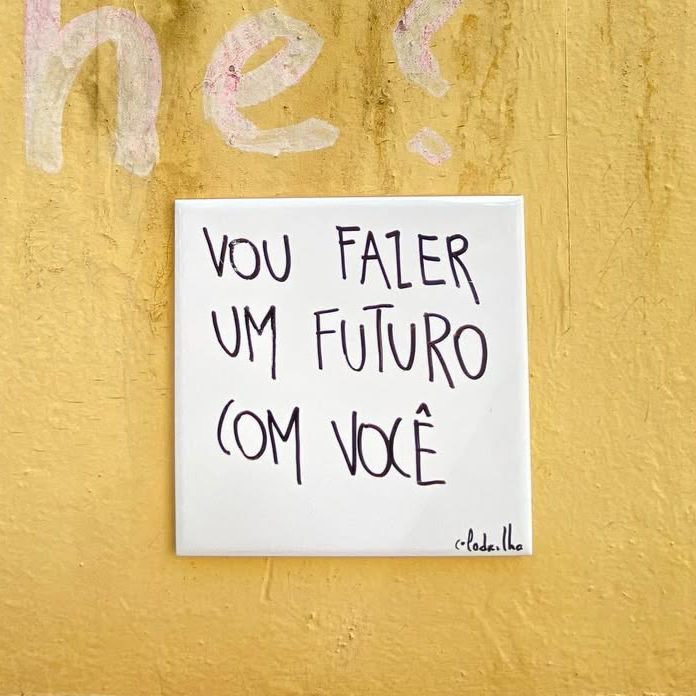 he?
VOU FAZER
UM FUTURO
COM VOCÊ